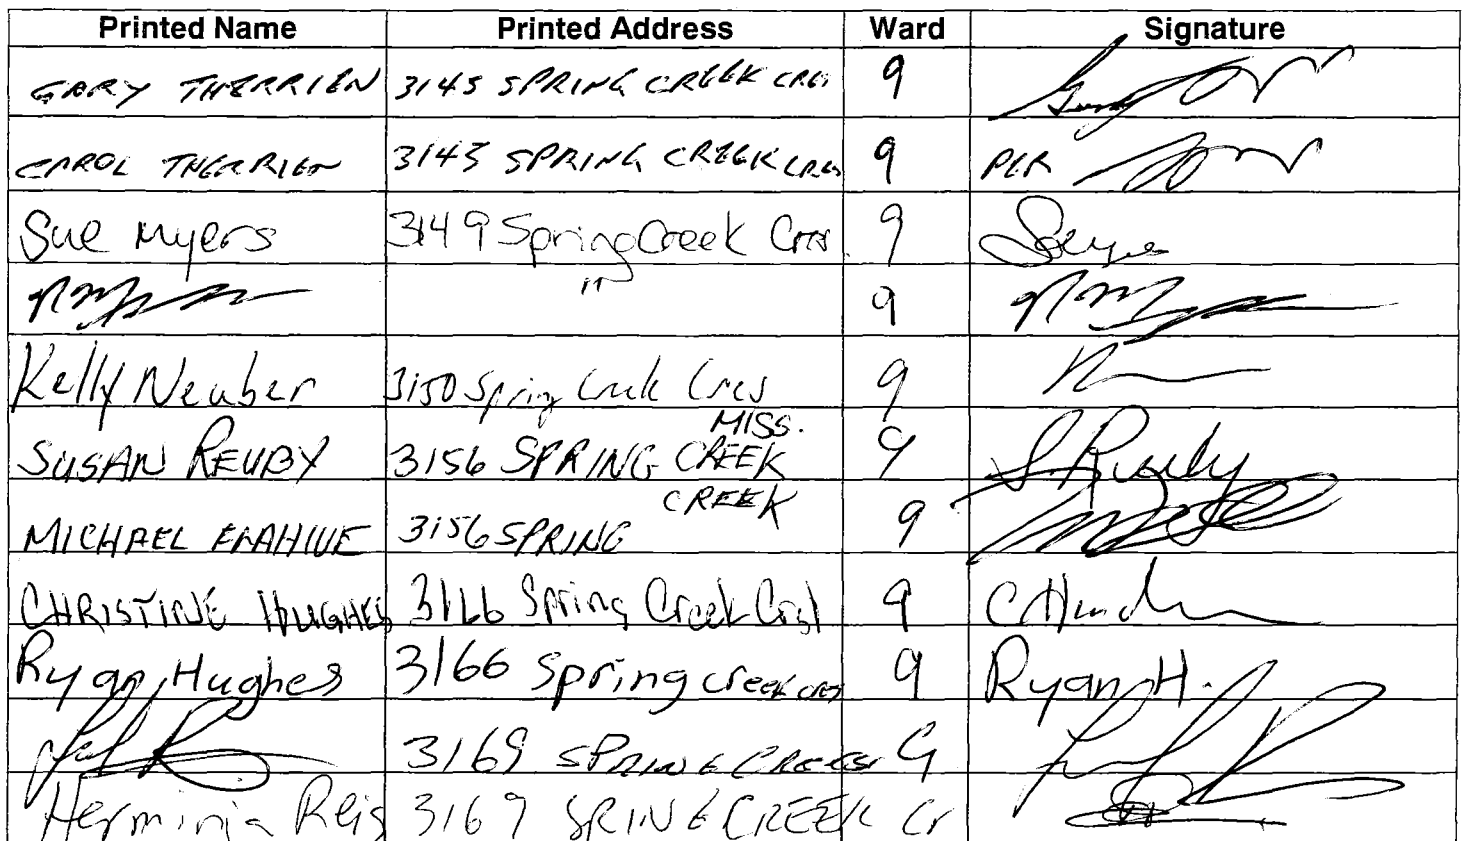 Printed Name Printed Address Ward Signature
GARY THERRIEN 3145 SPRING CREEK CRES 9
CAROL THERRIEN 3145 SPRING CREEK CRES 9 PER
Sue Myers 3149 Spring Creek Cres 9
" 9
Kelly Neuber 3150 Spring Creek Cres 9
MISS.
SUSAN REUBY 3156 SPRING CREEK 9 S Reuby
CREEK
MICHAEL 3156 SPRING 9
CHRISTINE HUGHES 3166 Spring Creek Crst 9
Ryan Hughes 3166 Spring creek cres 9 Ryan H.
3169 SPRING CREEK 9
Herminia Reis 3169 SRING CREEK Cr